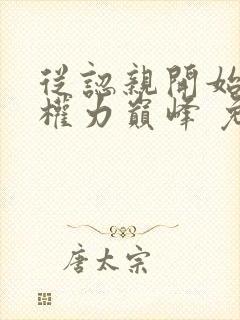 從認親開始
權力巔峰
唐太宗